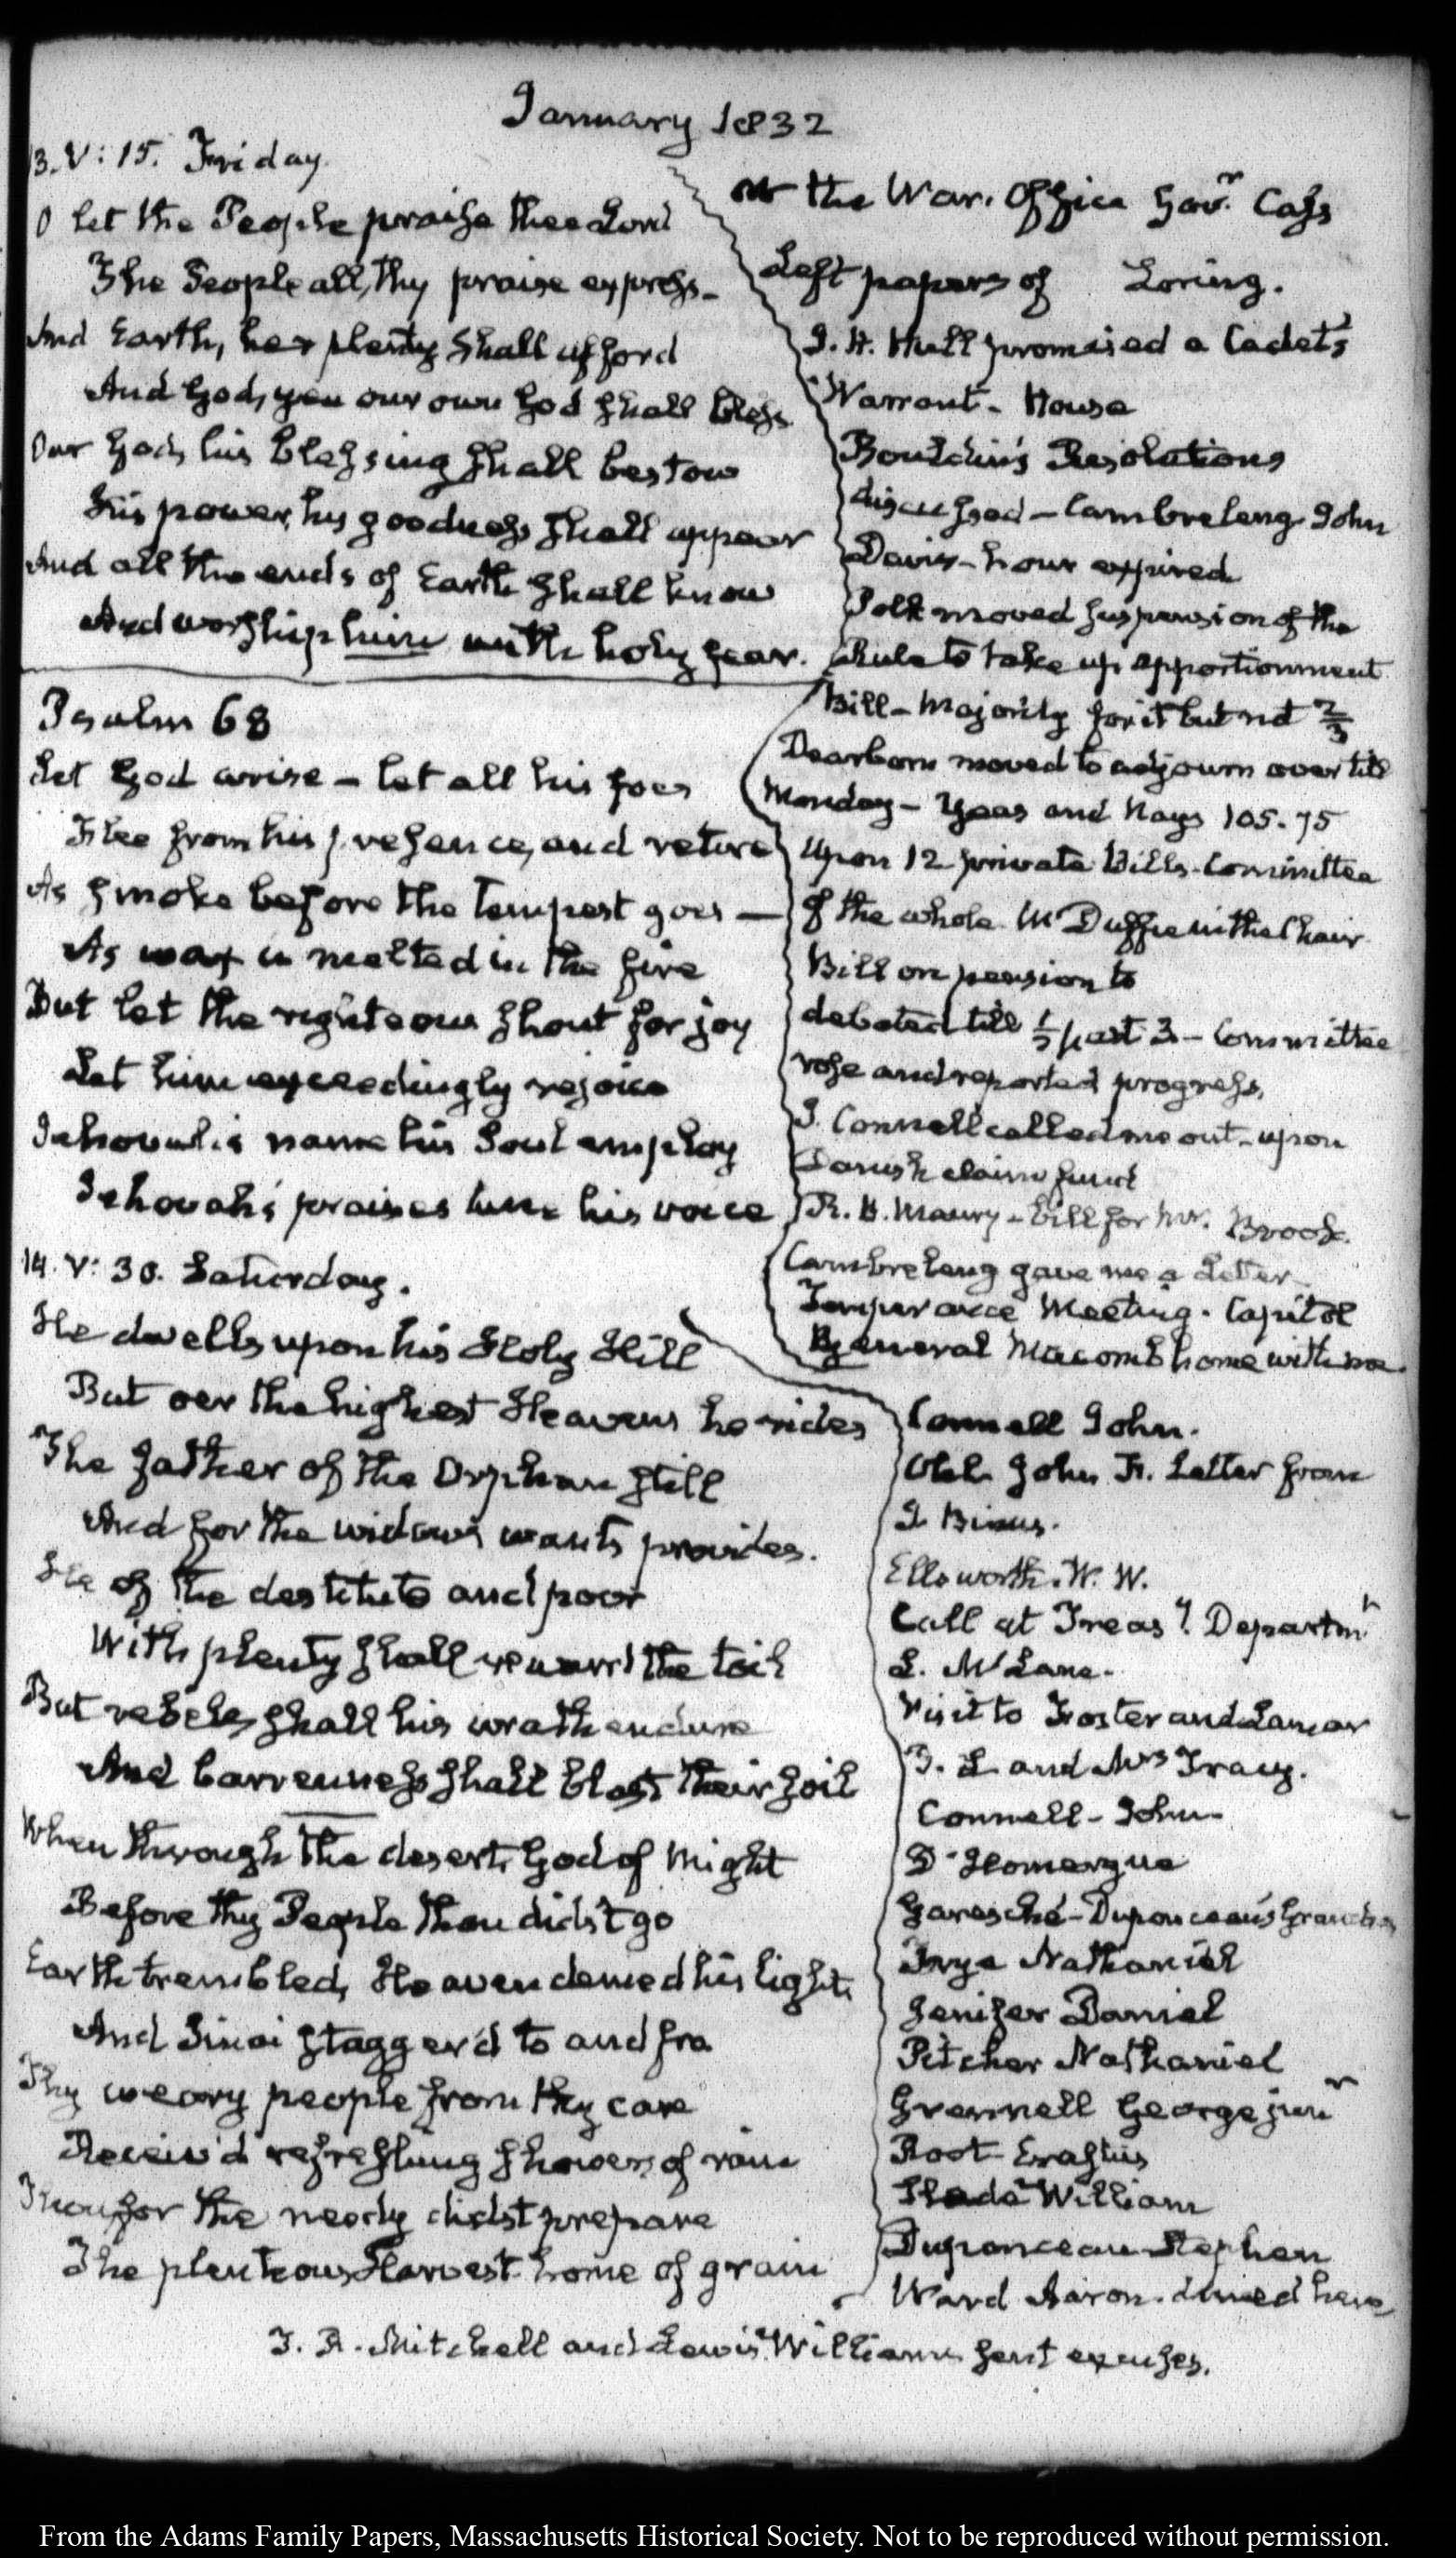 January 1832
13. V: 15. Friday.
O let the People praise thee Lord
The People all, thy praise express_
And Earth, her plenty shall afford
And God, yea our own God shall bless.
Our God, his blessing shall bestow
His power, his goodness shall appear
And all the ends of Earth shall know
And worship him with holy fear.
Psalm 68
Let God arise – let all his foes
Flee from his presence, and retire
As smoke before the Tempest goes —
As wax is melted in the fire
But let the righteous shout for joy
Let him exceedingly rejoice
Jehovah's name his Soul employ
Jehovah's praises tune his voice
at the War. Office Govr. Cass
Left papers of Loring.
J. H. Hull promised a Cadet's
Warrant – House
Bouldin's Resolutions
discussed – Cambreleng John
Davis – hour expired
Polk moved suspension of the
Rule to take up apportionment
Bill – Majority for it but not 2/3
Dearborn moved to adjourn over till
Monday – Yeas and Nays 105. 75
Upon 12 private Bills. Committee
of the whole McDuffie in the Chair
Bill on pension to
debated till ½ past 3 – Committee
rose and reported progress,
J. Connell called me out – upon
Danish claim fund
R. B. Maury – bill for Mr. Brook.
Cambreleng gave me a Letter
Temperance Meeting. Capitol
General Macomb home with me.
14. V: 30. Saturday.
He dwells upon his Holy Hill
But oer the highest Heavens he rides
The father of the Orphan still
And for the widow's wants provides.
He of the destitute and poor
With plenty shall reward the toil
But rebels shall his wrath endure
And barrenness shall blast their soil
When through the desert, God of might
Before thy People thou didst go
Earth trembled, Heaven denied his light,
And Sinai stagger'd to and fro
Thy weary people from thy care
Receiv'd refreshing showers of rain
Thou for the needy didst prepare
The plenteous Harvest-home of grain
Connell John.
John Jr. Letter from
J Binns.
Ellsworth. W. W.
Call at Treasy. Departmt
L. McLane.
Visit to Foster and Lamar
J. L and Mrs Tracy.
Connell – John
D'Homergue
Garesché – Duponceau's Grandson
Frye Nathaniel
Jenifer Daniel
Pitcher Nathaniel
Grennell George junr
Root Erastus
Slade William
Duponceau Stephen
Ward Aaron. dined here
T. R. Mitchell and Lewis Williams sent excuses.
From the Adams Family Papers, Massachusetts Historical Society. Not to be reproduced without permission.